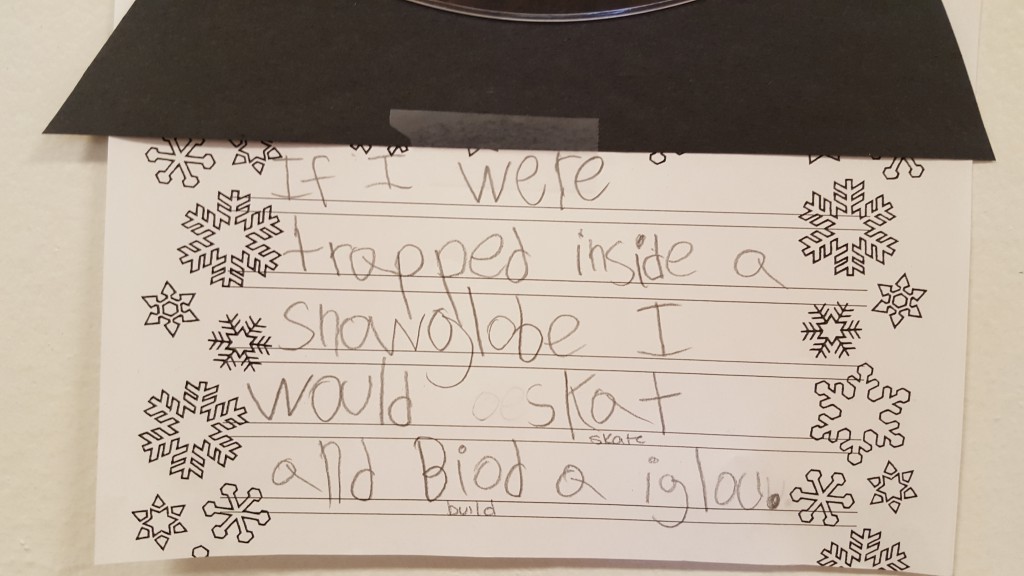 If I were
trapped inside a
snowglobe I
would skat
skate
and Biod a iglou.
build